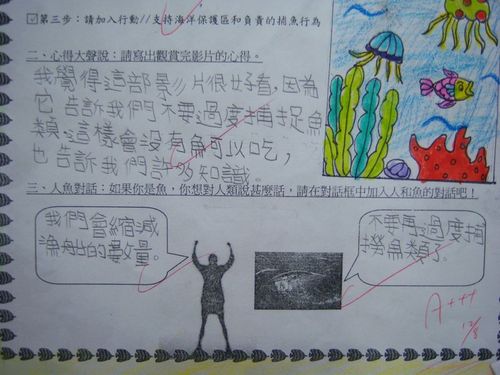 ☑第三步：請加入行動//支持海洋保護區和負責的捕魚行為
二、心得大聲說：請寫出觀賞完影片的心得。
我覺得這部影片很好看，因為
它告訴我們不要過度捕捉魚
類，這樣會没有魚可以吃，
也告訴我們許多知識。
三、人魚對話：如果你是魚，你想對人類說甚麼話，請在對話框中加入人和魚的對話吧！
我們會縮減
漁船的數量。
不要再過度捕
撈魚類了。
A+++
12/8